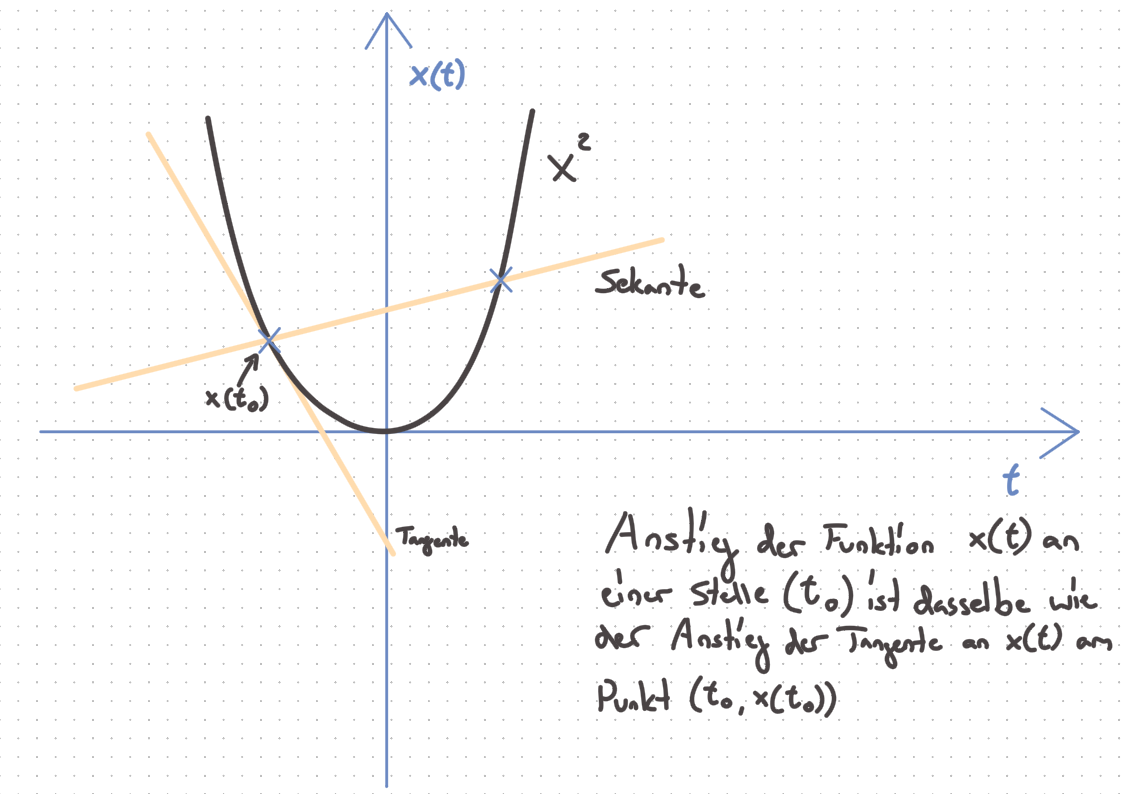 x(t)
x²
Sekante
x(t₀)
t
Tangente
Anstieg der Funktion x(t) an
einer Stelle (t₀) ist dasselbe wie
der Anstieg der Tangente an x(t) am
Punkt (t₀, x(t₀))